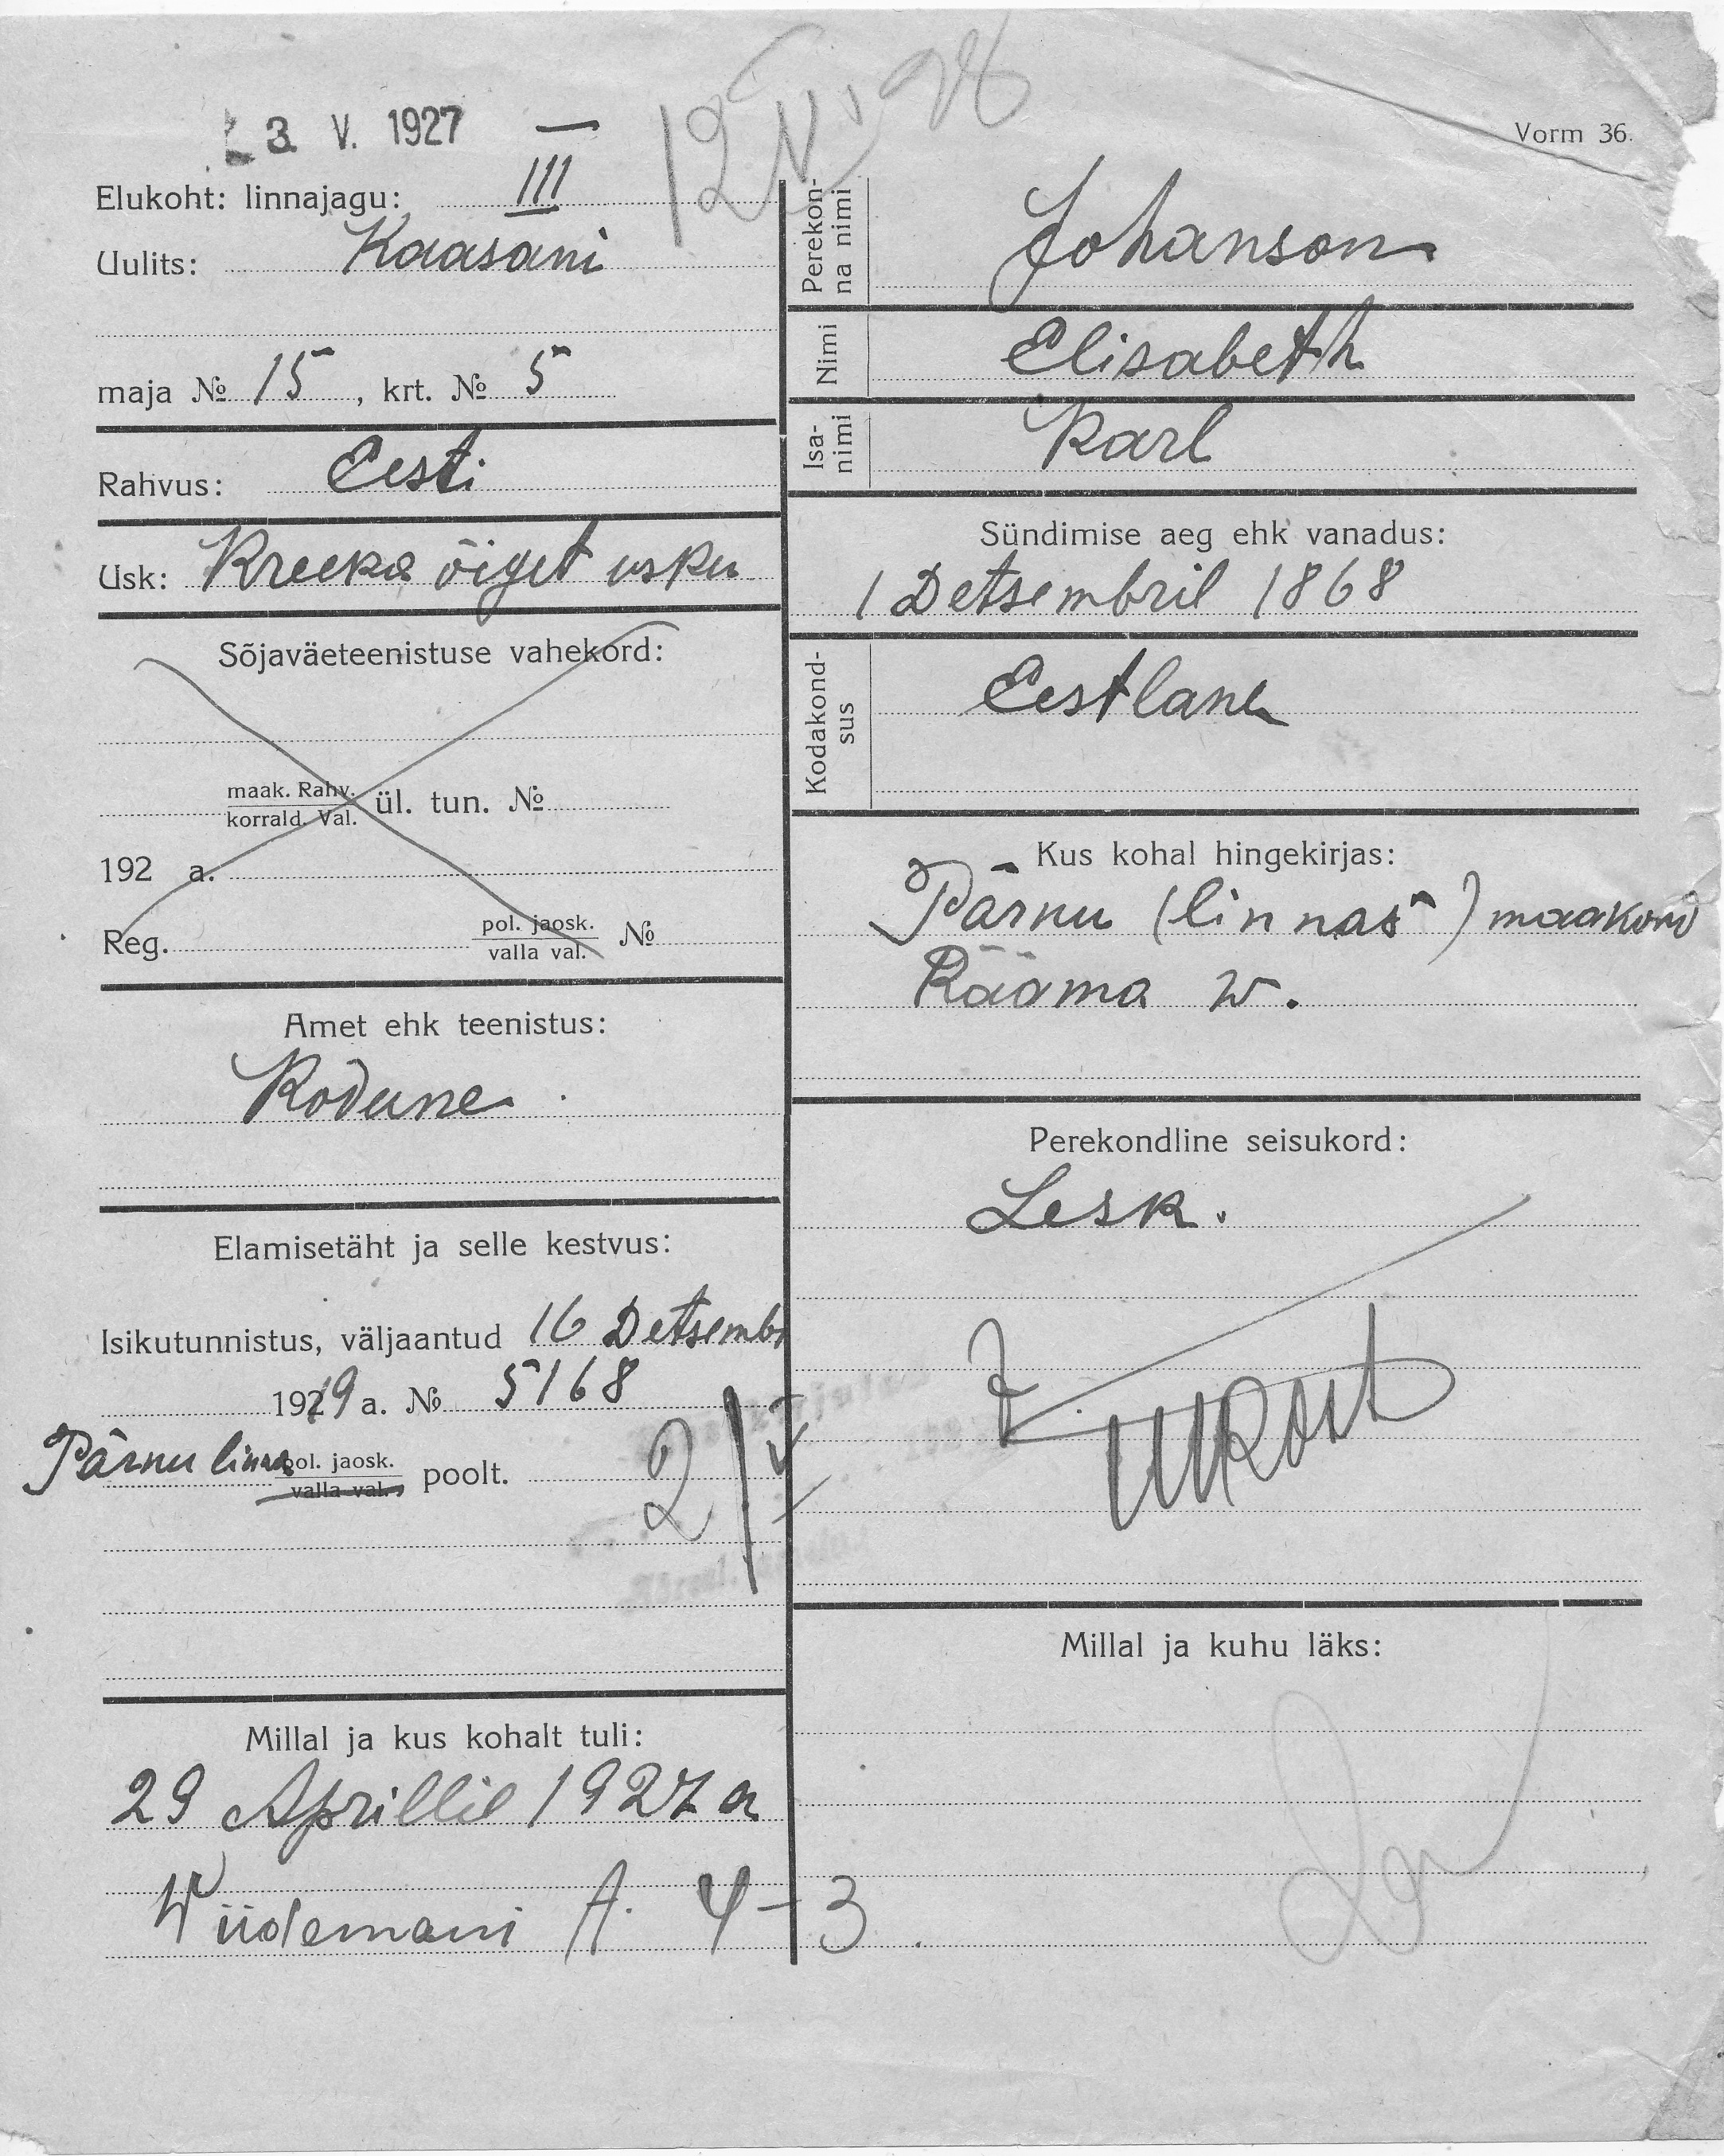 3. V. 1927 —
12 IV 28
Vorm 36.
Elukoht: linnajagu: III
Uulits: Kaasani
maja № 15, krt. № 5
Rahvus: Eesti
Usk: Kreeka õiget usku
Sõjaväeteenistuse vahekord:
maak. Rahv.
korrald. Val. ül. tun. №
192 a.
Reg. pol. jaosk.
valla val. №
Amet ehk teenistus:
Kodune.
Elamisetäht ja selle kestvus:
Isikutunnistus, väljaantud 16 Detsembr
1919 a. № 5168
Pärnu linna pol. jaosk.
valla val. poolt.
2/V
Millal ja kus kohalt tuli:
29 Aprillil 1927 a
Wiidemani A. 4-3.
Perekonna nimi
Johanson
Nimi
Elisabeth
Isanimi
Karl
Sündimise aeg ehk vanadus:
1 Detsembril 1868
Kodakondsus
Eestlane
Kus kohal hingekirjas:
Pärnu (linnas) maakond
Rääma w.
Perekondline seisukord:
Lesk.
Millal ja kuhu läks: